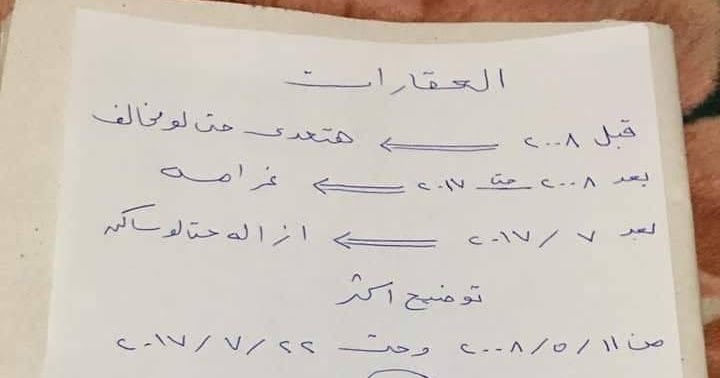 العقارات
قبل ٢٠٠٨ ⟸ هتعدى حتى لو مخالف
بعد ٢٠٠٨ حتى ٢٠١٧ ⟸ غرامه
بعد ٧ / ٢٠١٧ ⟸ ازاله حتا لو ساكن
توضيح اكثر
من ١١ / ٥ / ٢٠٠٨ وحتى ٢٢ / ٧ / ٢٠١٧